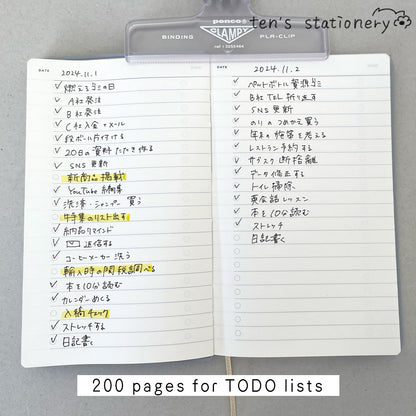 ten's stationery
penco®
CLAMPY
BINDING
PLA-CLIP
DATE
2024.11.1
燃えるゴミの日
A社発注
B社発注
C社入金→メール
段ボール片付ける
20日の資料たたき作る
SNS更新
新商品掲載
YouTube編集
洗濯・シャンプー買う
特集のリスト出す
納品リマインド
返信する
コーヒーメーカー洗う
輸入時の関税調べる
本を10分読む
カレンダーめくる
入稿チェック
ストレッチする
日記書く
DATE
2024.11.2
ペットボトル資源ゴミ
B社TEL折り返す
SNS更新
のりのつめかえ買う
年末の施策を考える
レストラン予約する
サブスク断捨離
データ修正する
トイレ掃除
英会話レッスン
本を10分読む
ストレッチ
日記書く
200 pages for TODO lists